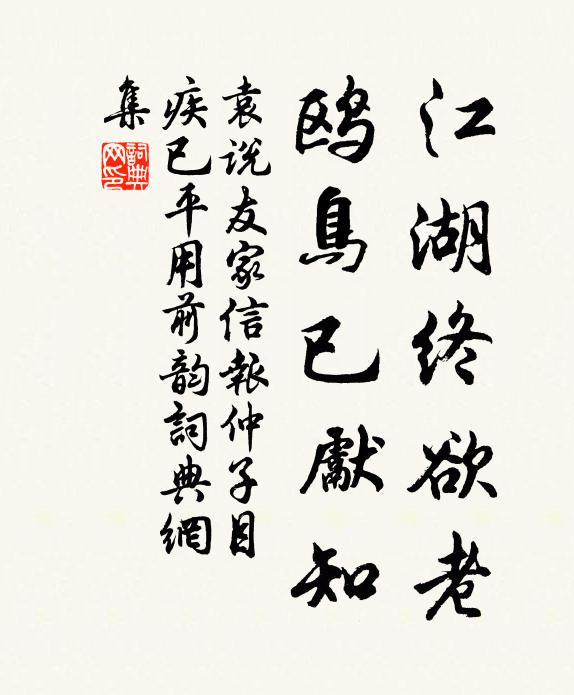 江湖终欲老
鸥鳥已獻知
袁说友家信報仲子目
疾已平用前韵詞典網
集
詞典網印